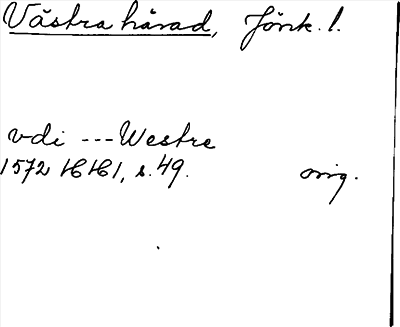 Västra härad, Jönk. l.
vdi --- Westre
1572 HH 1, s. 49. orig.